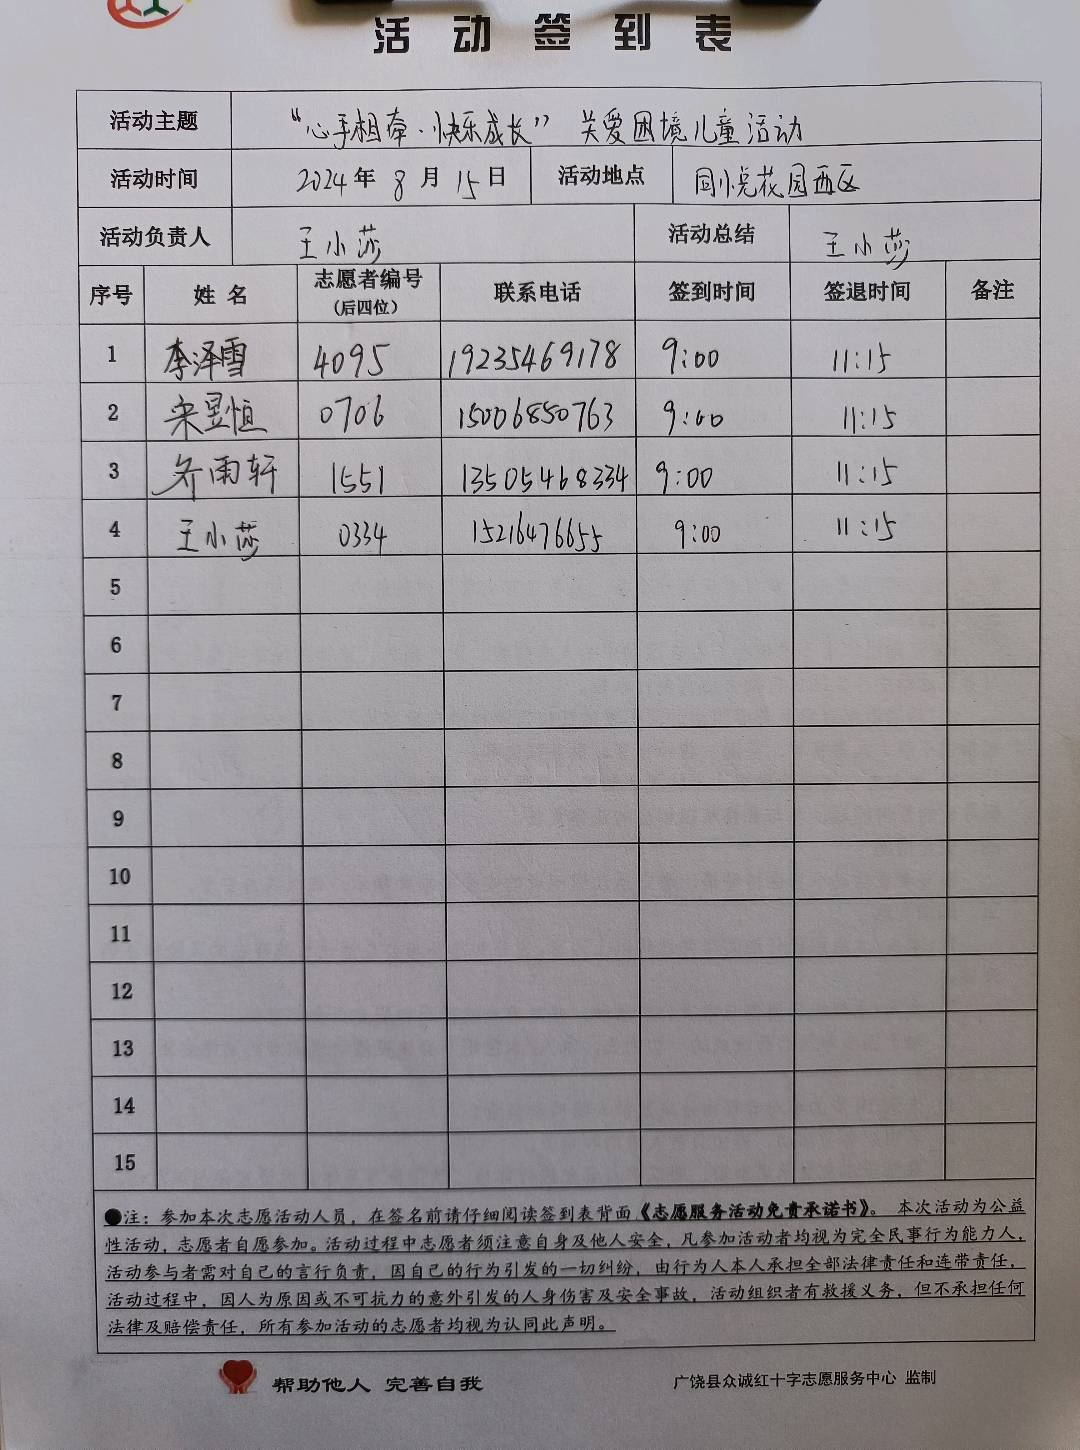 活动签到表
活动主题 “心手相牵·快乐成长” 关爱困境儿童活动
活动时间 2024年8月15日 活动地点 花园西区
活动负责人 王小莎 活动总结 王小莎
序号 姓名 志愿者编号 联系电话 签到时间 签退时间 备注
(后四位)
1 李泽雪 4095 19235469178 9:00 11:15
2 宋昱恒 0706 15006850763 9:00 11:15
3 齐雨轩 1551 13505468334 9:00 11:15
4 王小莎 0334 15216476655 9:00 11:15
5
6
7
8
9
10
11
12
13
14
15
●注：参加本次志愿活动人员，在签名前请仔细阅读签到表背面《志愿服务活动免责承诺书》。本次活动为公益
性活动，志愿者自愿参加。活动过程中志愿者须注意自身及他人安全，凡参加活动者均视为完全民事行为能力人，
活动参与者需对自己的言行负责，因自己的行为引发的一切纠纷，由行为人本人承担全部法律责任和连带责任，
活动过程中，因人为原因或不可抗力的意外引发的人身伤害及安全事故，活动组织者有救援义务，但不承担任何
法律及赔偿责任，所有参加活动的志愿者均视为认同此声明。
帮助他人 完善自我 广饶县众诚红十字志愿服务中心 监制